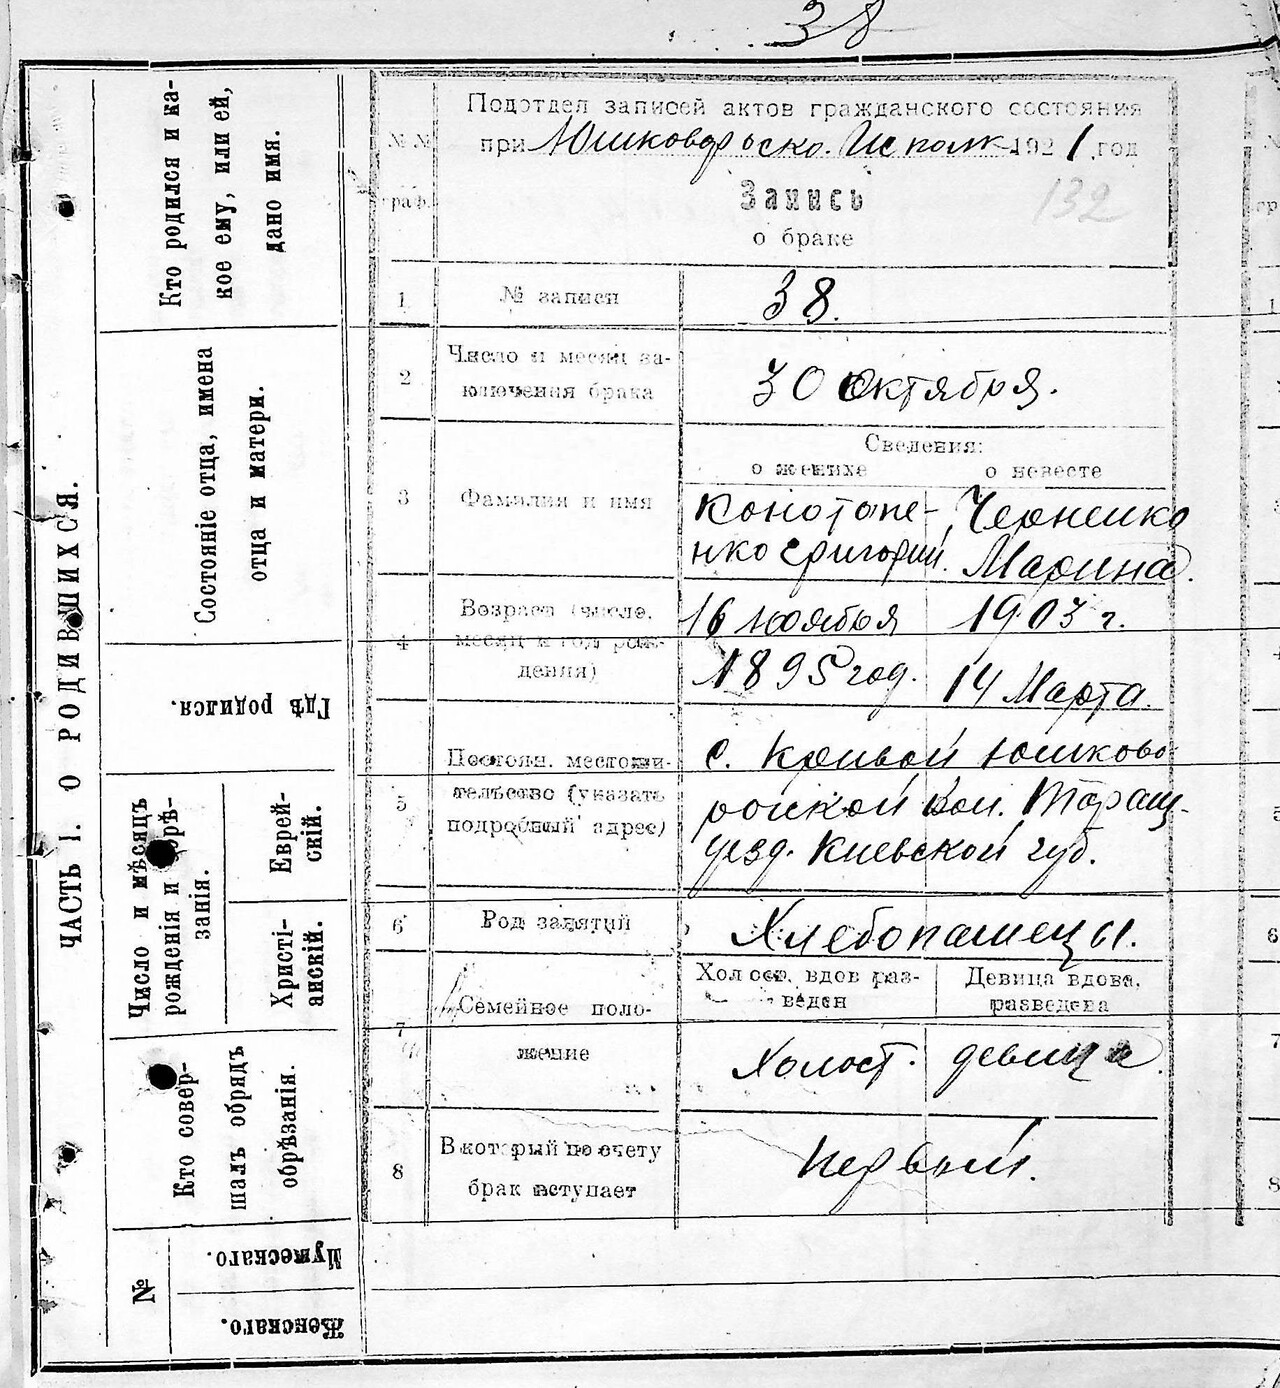 38
ЧАСТЬ I. О РОДИВШИХСЯ.
Кто родился и ка-
кое ему, или ей,
дано имя.
Состояніе отца, имена
отца и матери.
Гдѣ родился.
Число и мѣсяцъ
рожденія и обрѣ-
занія.
Еврей-
скій.
Христі-
анскій.
Кто совер-
шалъ обрядъ
обрѣзанія.
№
Мужескаго.
Женскаго.
№№
граф.
Подотдел записей актов гражданского состояния
при Юшковорско. Исполк. 1921 год
Запись
132
о браке
1
№ записи
38.
2
Число и месяц за-
ключения брака
30 октября.
3
Фамилия и имя
Сведения:
о женихе
о невесте
Конотопе-
нко Григорий.
Черненко
Марина.
4
Возраст (число,
месяц и год рож-
дения)
16 ноября
1895 год.
1903 г.
14 Марта.
5
Постоян. местожи-
тельство (указать
подробный адрес)
с. Кривой Юшково
ройской вол. Таращ.
уезд. Киевской губ.
6
Род занятий
Хлебопашецы.
7
Семейное поло-
жение
Холост. вдов раз-
веден
Девица вдова,
разведена
Холост.
девица.
8
В который по счету
брак вступает
первый.